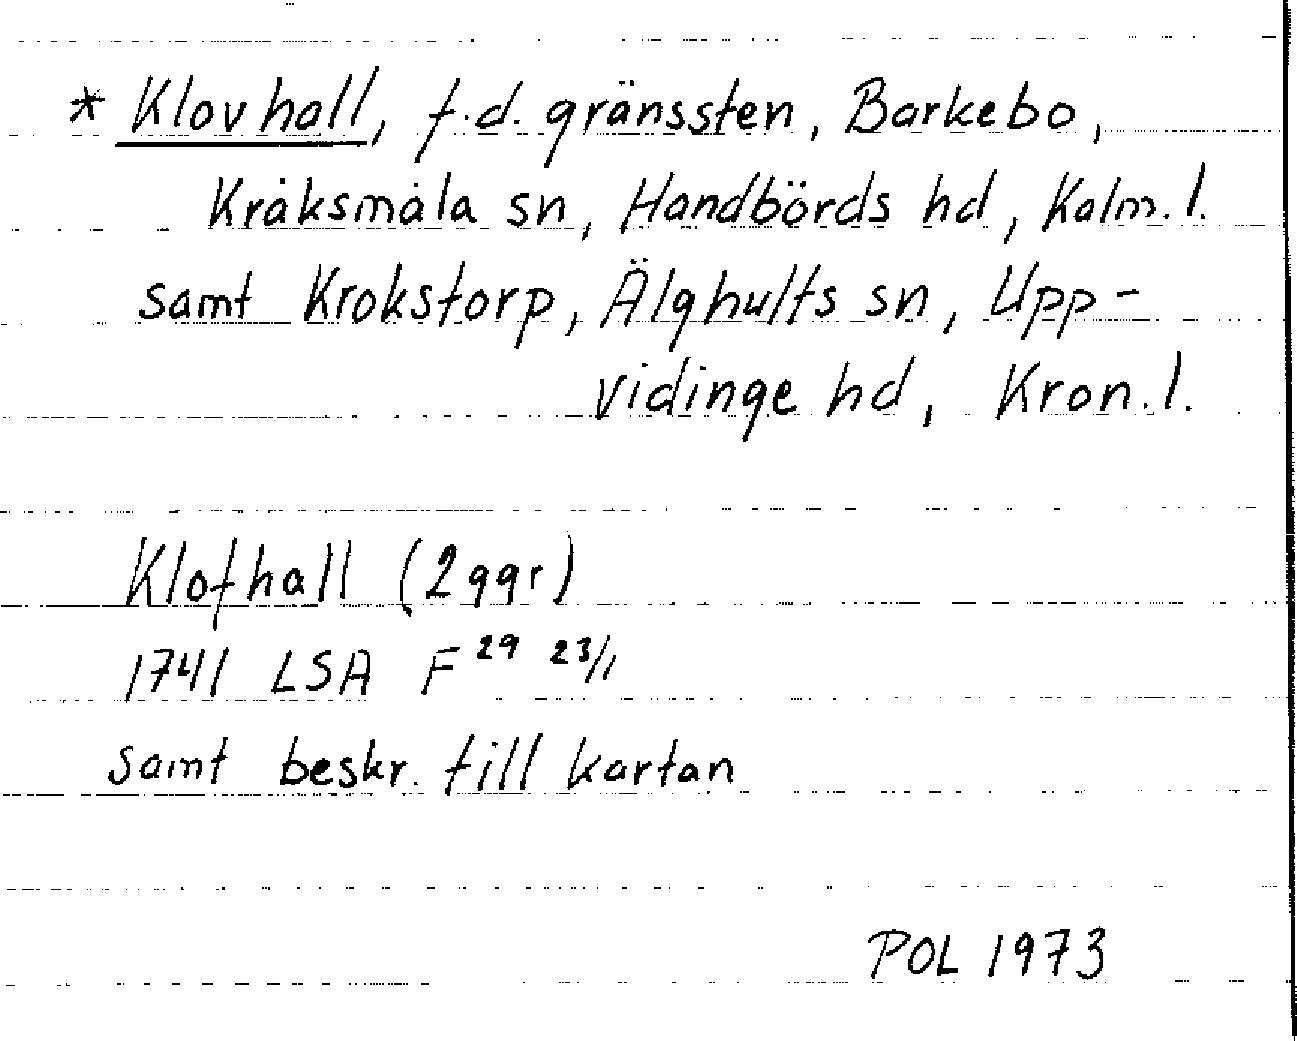 * Klovhall, f.d. gränssten, Barkebo,
Kråksmåla sn, Handbörds hd, Kalm. l.
samt Krokstorp, Älghults sn, Upp-
vidinge hd, Kron. l.
Klofhall (2 ggr)
1741 LSA F 29 23/1
samt beskr. till kartan
POL 1973